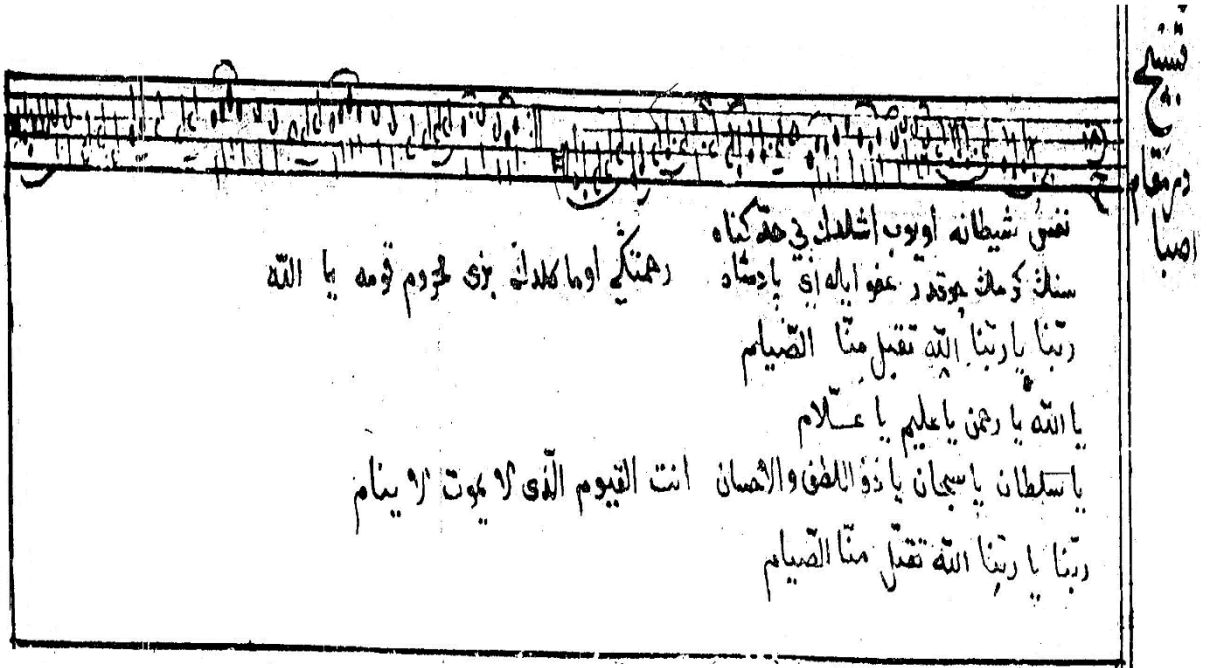 تسبيح
در مقام
صبا
نفس شيطانه اويوب اشلدك بيحد كناه
سنك كرمك چوقدر عفو ايله اى پادشاه رحمتكى اوما كلدك بزى محروم قومه يا الله
ربّنا يا ربّنا الله تقبل منّا الصّيام
يا الله يا رحمن يا عليم يا عـــلّام
يا سلطان يا سبحان يا ذو اللطف والاحسان انت القيوم الّذى لا يموت لا ينام
ربّنا يا ربّنا الله تقبّل منّا الصّيام